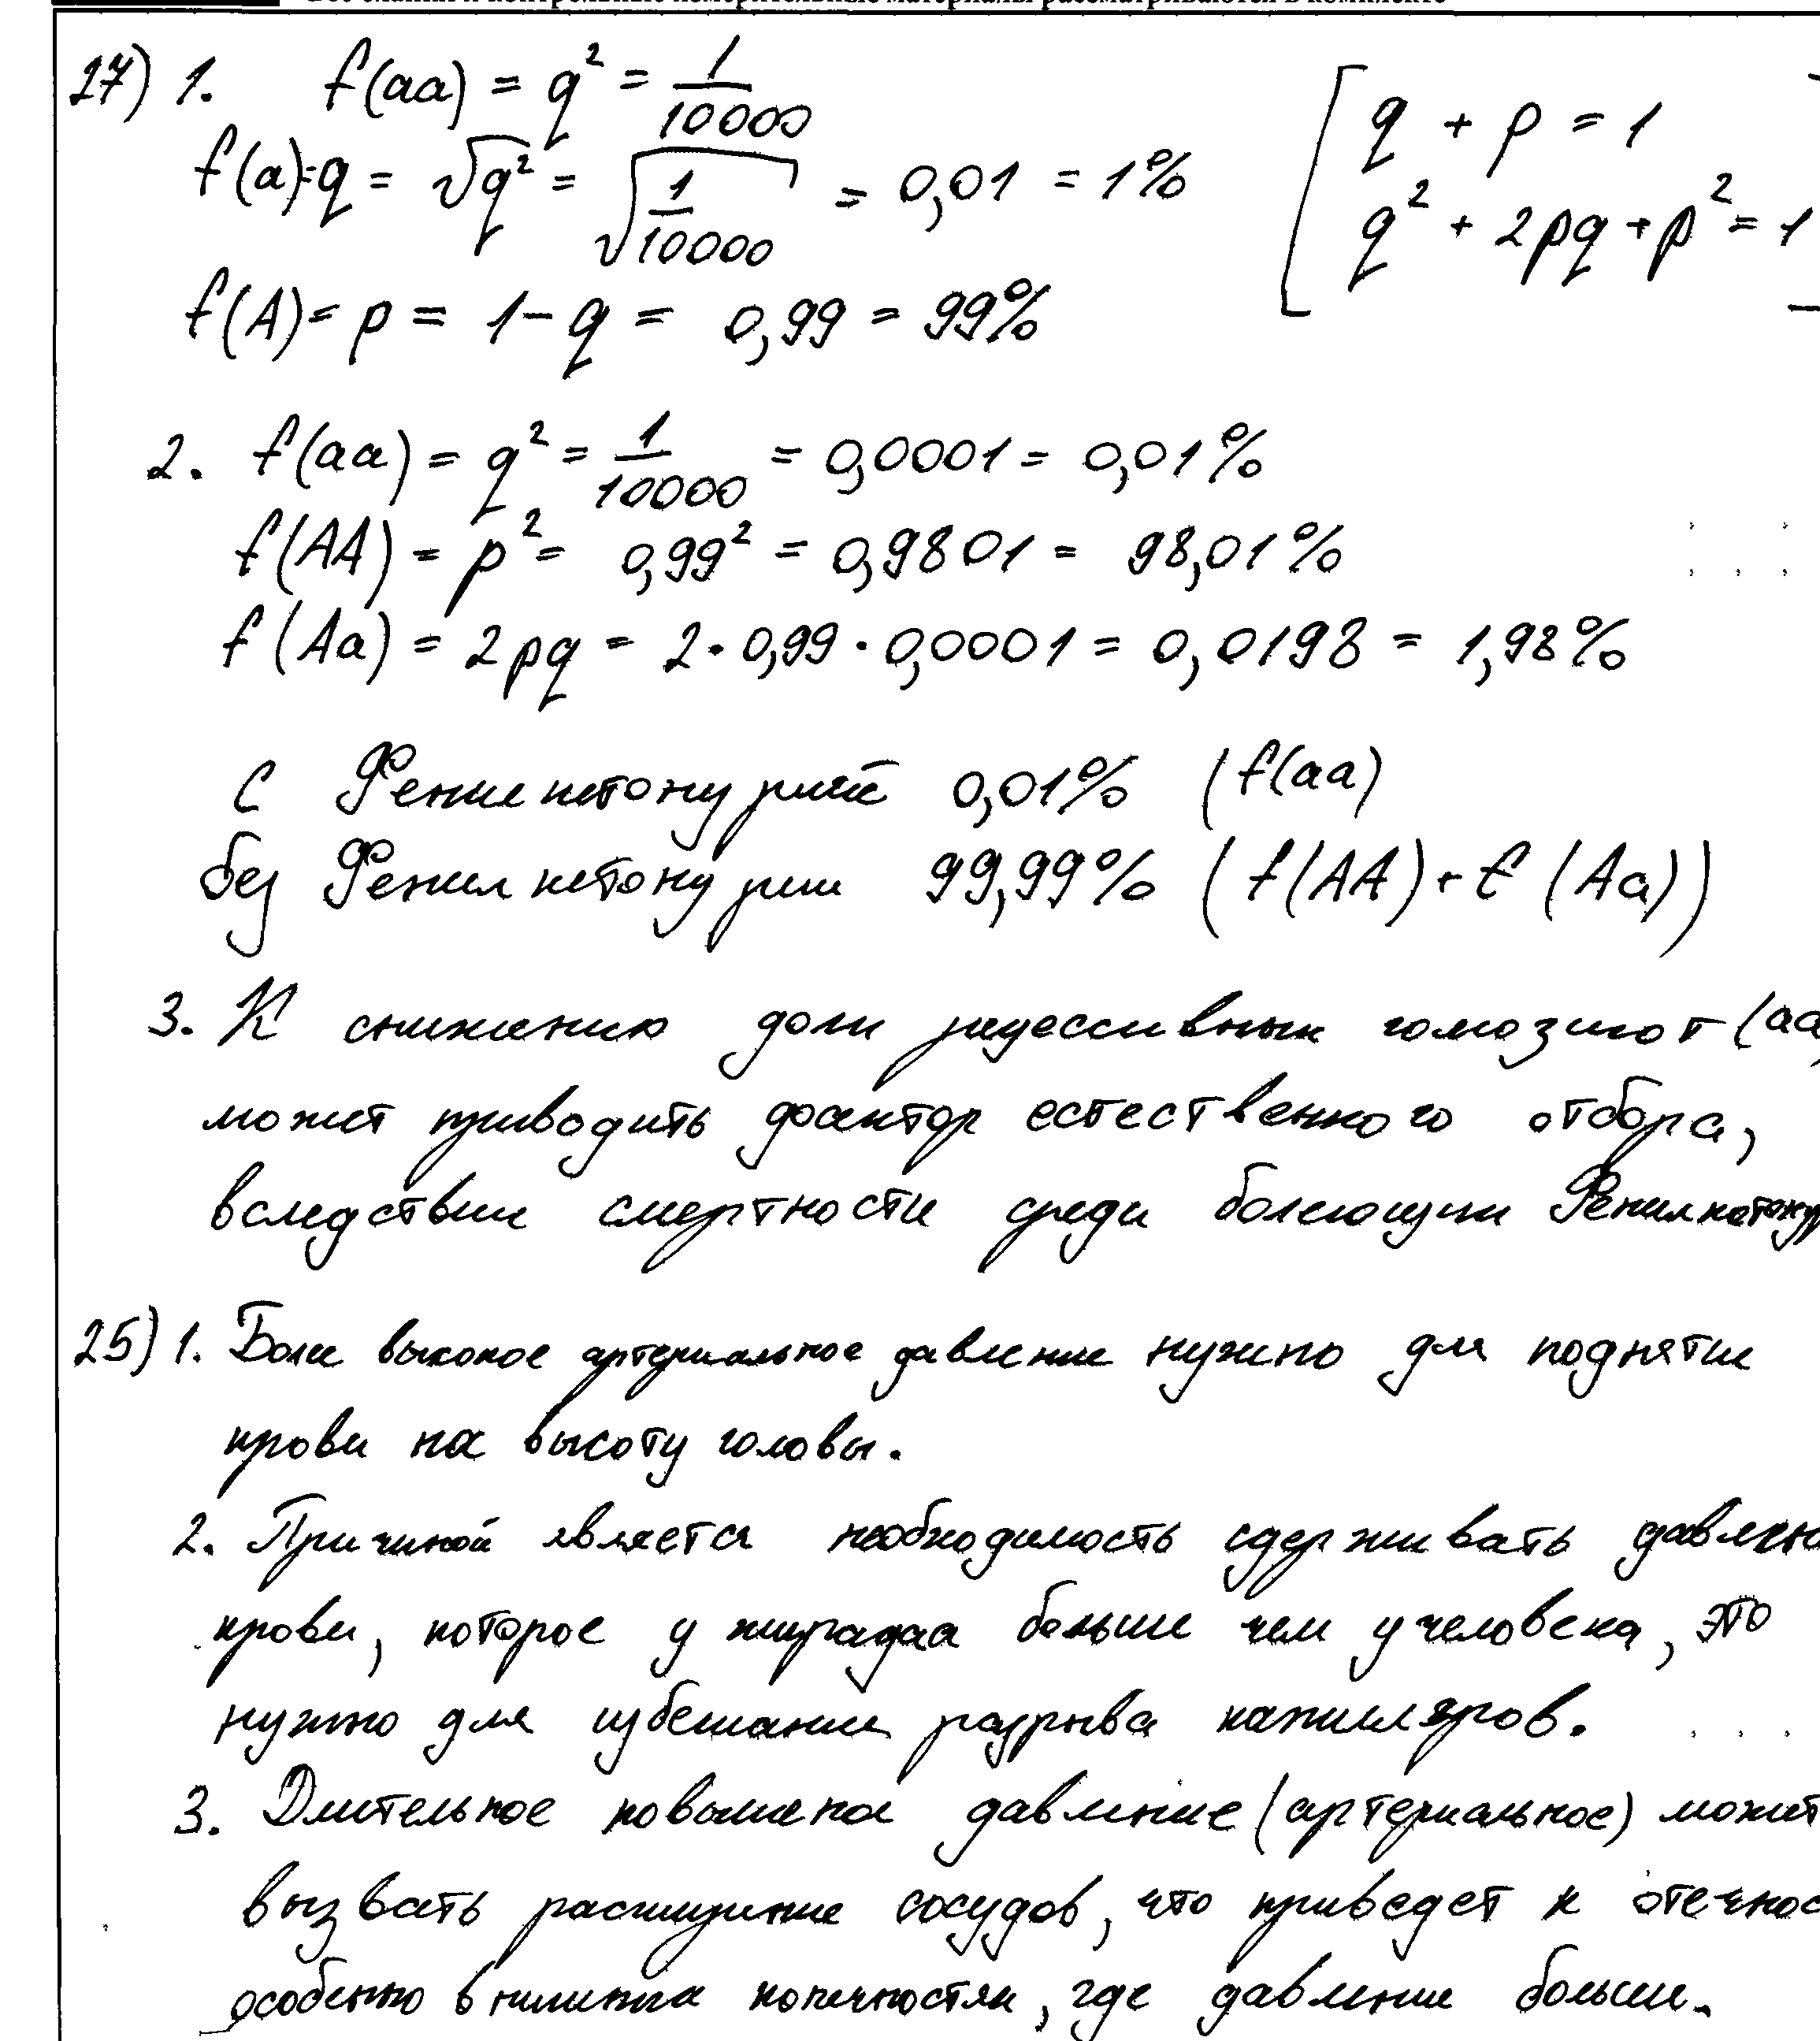 27) 1. f(aa) = q² = 1/10000
f(a)=q = √q² = √(1/10000) = 0,01 = 1%
[ q + p = 1
q² + 2pq + p² = 1
f(A) = p = 1 - q = 0,99 = 99%
2. f(aa) = q² = 1/10000 = 0,0001 = 0,01%
f(AA) = p² = 0,99² = 0,9801 = 98,01%
f(Aa) = 2pq = 2·0,99·0,0001 = 0,0198 = 1,98%
С Фенилкетонурией 0,01% (f(aa)
без Фенилкетонурии 99,99% (f(AA) + f(Aa))
3. К снижению доли рецессивных гомозигот (aa
может приводить фактор естественного отбора,
вследствии смертности среди болеющих Фенилкетонур
25) 1. Более высокое артериальное давление нужно для поднятие
крови на высоту головы.
2. Причиной является необходимость сдерживать давлени
крови, которое у жирафа больше чем у человека, это
нужно для избежание разрыва капилляров.
3. Длительное повышеное давление (артериальное) может
вызвать расширение сосудов, что приведет к отечнос
особенно в конечностях, где давление больше.